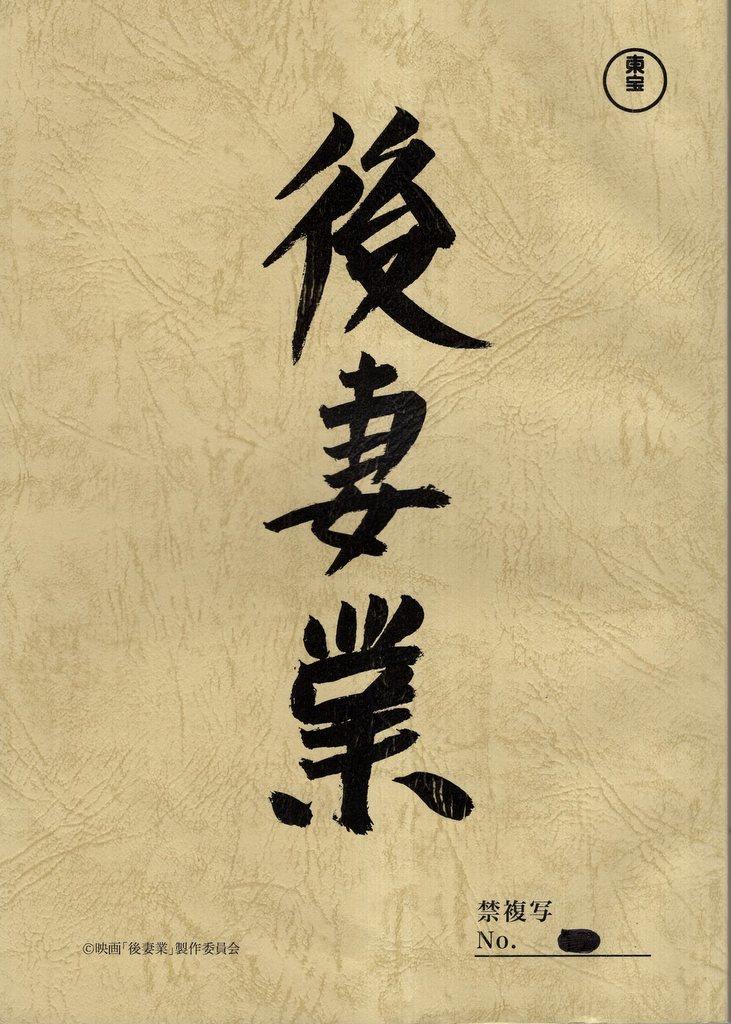 東宝
後妻業
禁複写
No.
©映画「後妻業」製作委員会